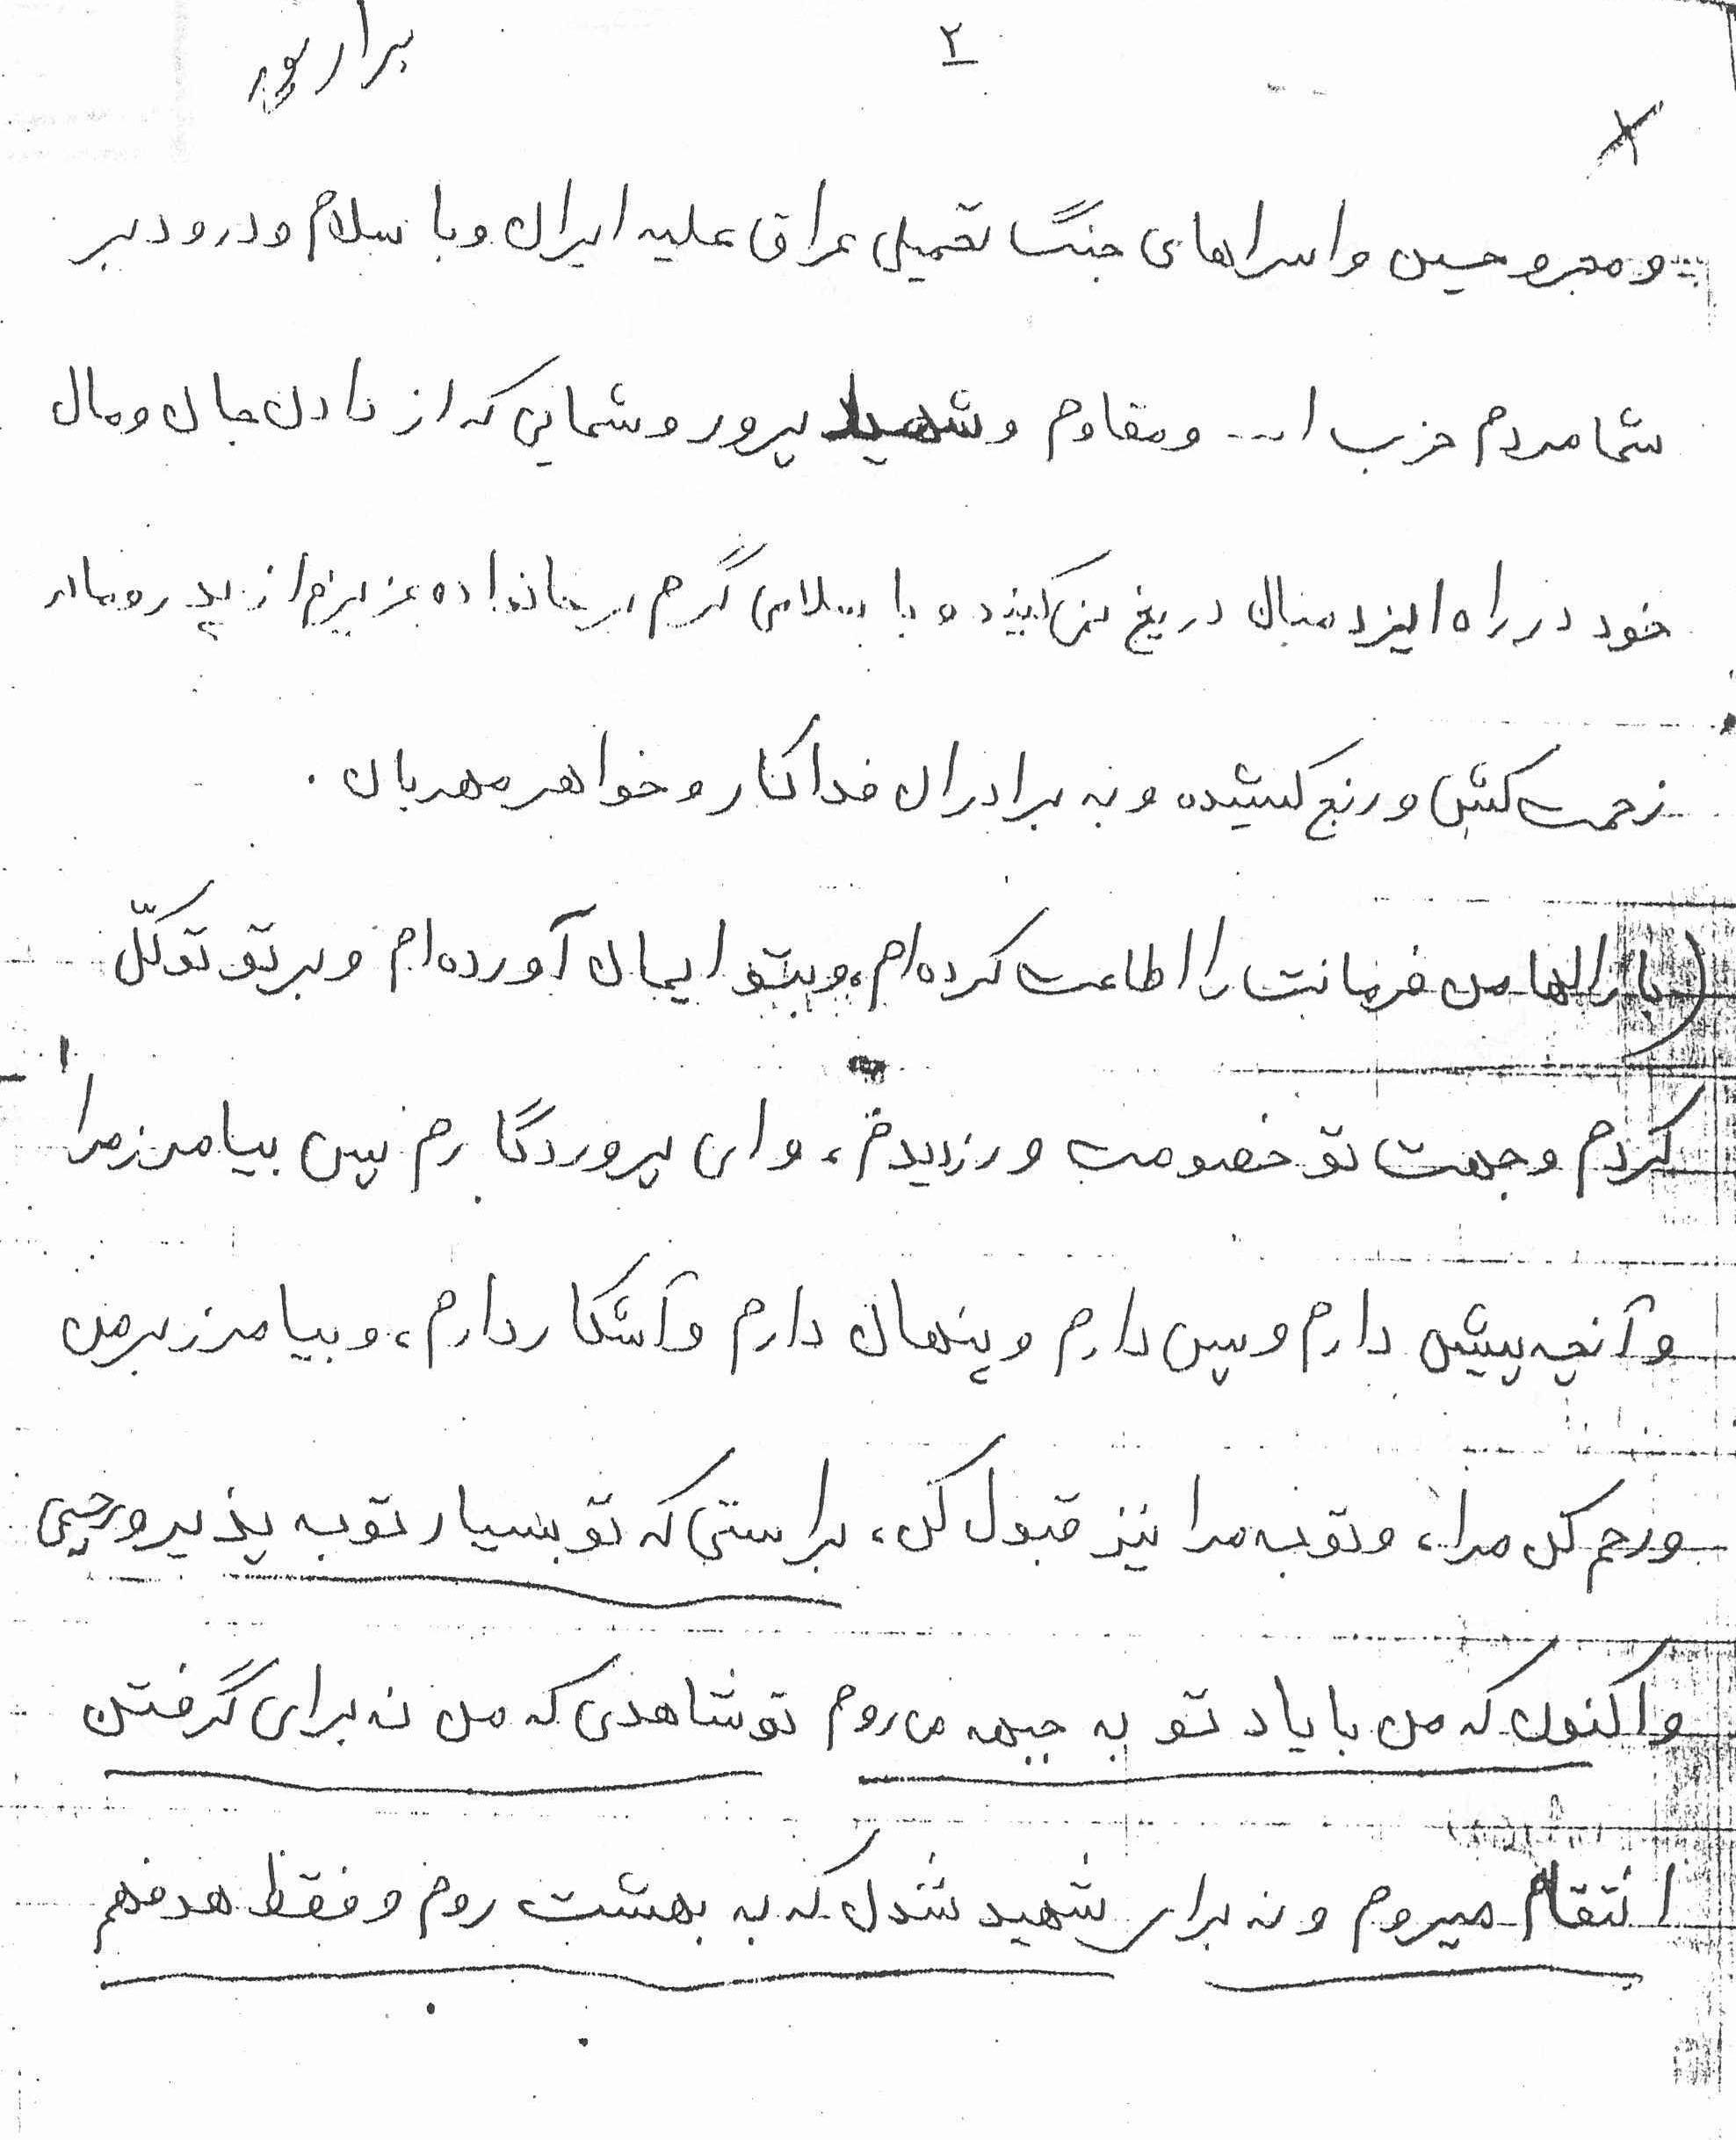 ۲
برارپور
و مجروحین و اسراهای جنگ تحمیلی عراق علیه ایران و با سلام و درود بر
شما مردم حزب ا... و مقاوم و شهید پرور و شمایی که از دادن جان و مال
خود در راه ایزد منال دریغ نمی‌کنید و با سلامی گرم بر خانواده عزیزم از پدر و مادر
زحمت کش و رنج کشیده و به برادران فداکار و خواهر مهربان .
(بارالها من فرمانت را اطاعت کرده‌ام، و بتو ایمان آورده‌ام و بر تو توکّل
کردم و جهت تو خصومت ورزیدم، و ای پروردگارم پس بیامرز مرا
و آنچه پیش دارم و پس دارم و پنهان دارم و آشکار دارم، و بیامرز بر من
و رحم کن مرا، و توبه مرا نیز قبول کن، براستی که تو بسیار توبه پذیر و رحیمی
و اکنون که من با یاد تو به جبهه می‌روم تو شاهدی که من نه برای گرفتن
انتقام میروم و نه برای شهید شدن که به بهشت روم و فقط هدفهم